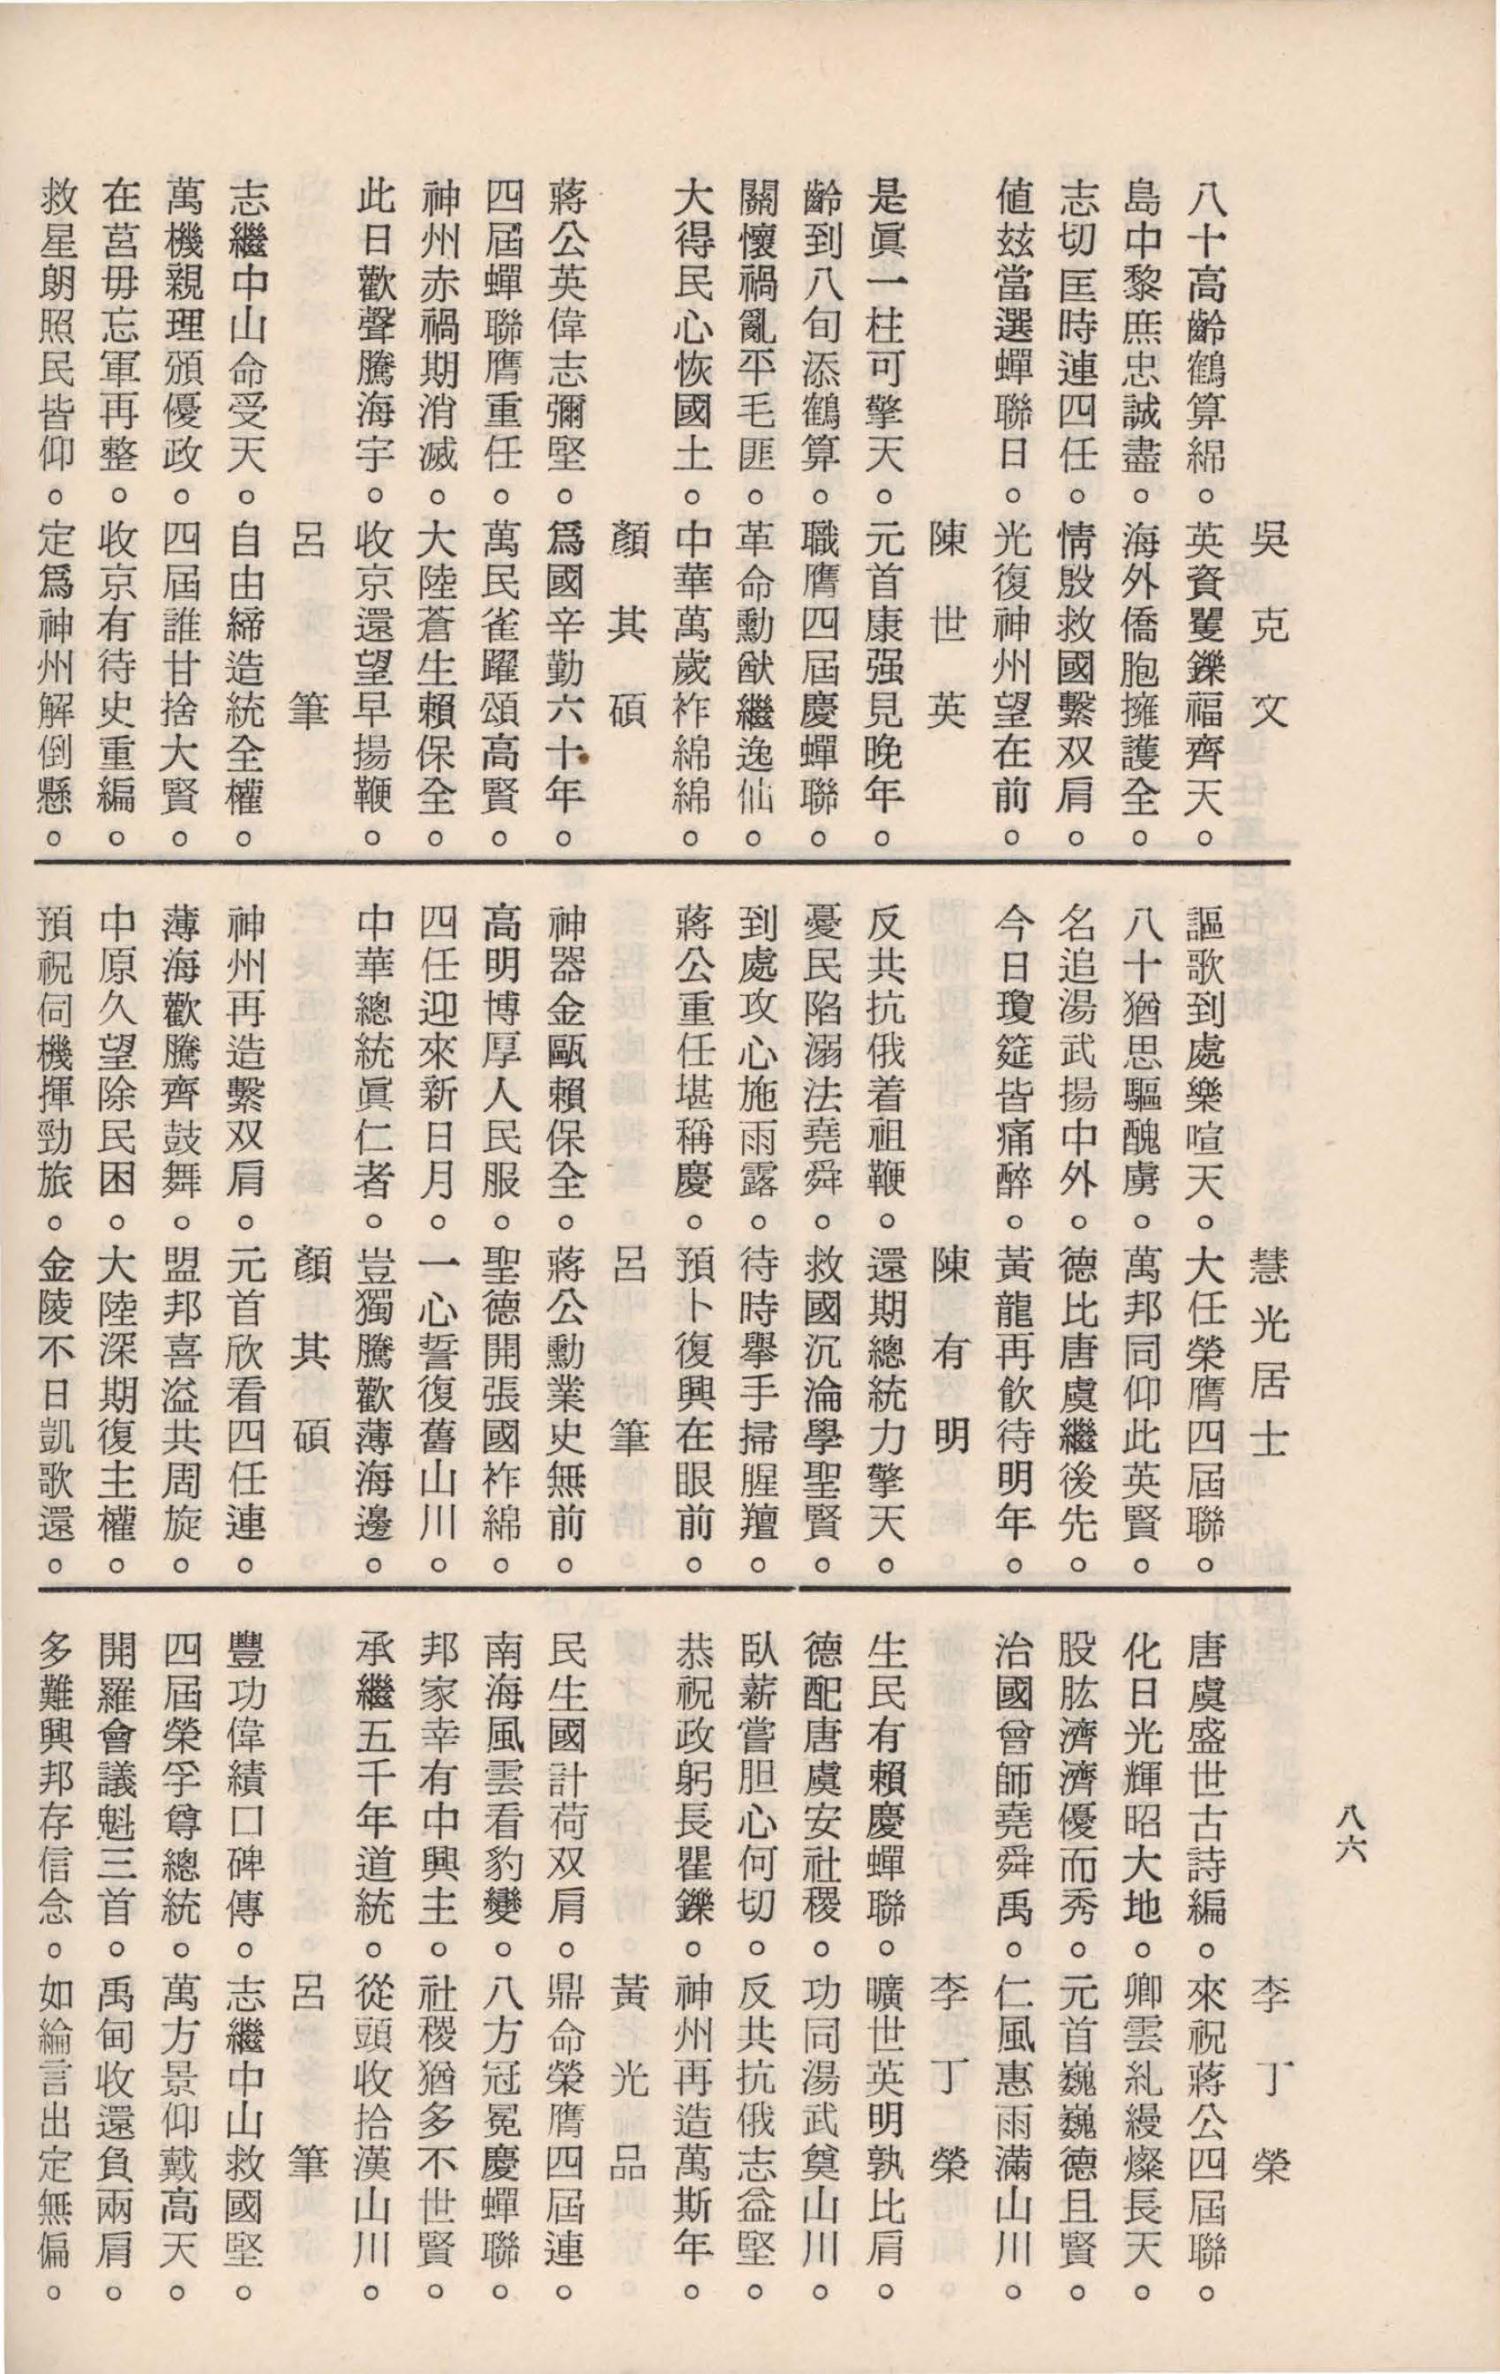 八六
吳克文
八十高齡鶴算綿。英資矍鑠福齊天。
島中黎庶忠誠盡。海外僑胞擁護全。
志切匡時連四任。情殷救國繫双肩。
値玆當選蟬聯日。光復神州望在前。
陳世英
是眞一柱可擎天。元首康强見晚年。
齡到八旬添鶴算。職膺四屆慶蟬聯。
關懷禍亂平毛匪。革命勳猷繼逸仙。
大得民心恢國土。中華萬歲祚綿綿。
顏其碩
蔣公英偉志彌堅。爲國辛勤六十年。
四屆蟬聯膺重任。萬民雀躍頌高賢。
神州赤禍期消滅。大陸蒼生賴保全。
此日歡聲騰海宇。收京還望早揚鞭。
呂筆
志繼中山命受天。自由締造統全權。
萬機親理頒優政。四屆誰甘捨大賢。
在莒毋忘軍再整。收京有待史重編。
救星朗照民皆仰。定爲神州解倒懸。
慧光居士
謳歌到處樂喧天。大任榮膺四屆聯。
八十猶思驅醜虜。萬邦同仰此英賢。
名追湯武揚中外。德比唐虞繼後先。
今日瓊筵皆痛醉。黃龍再飮待明年。
陳有明
反共抗俄着祖鞭。還期總統力擎天。
憂民陷溺法堯舜。救國沉淪學聖賢。
到處攻心施雨露。待時舉手掃腥羶。
蔣公重任堪稱慶。預卜復興在眼前。
呂筆
神器金甌賴保全。蔣公勳業史無前。
高明博厚人民服。聖德開張國祚綿。
四任迎來新日月。一心誓復舊山川。
中華總統眞仁者。豈獨騰歡薄海邊。
顏其碩
神州再造繫双肩。元首欣看四任連。
薄海歡騰齊鼓舞。盟邦喜溢共周旋。
中原久望除民困。大陸深期復主權。
預祝伺機揮勁旅。金陵不日凱歌還。
李丁榮
唐虞盛世古詩編。來祝蔣公四屆聯。
化日光輝昭大地。卿雲糺縵燦長天。
股肱濟濟優而秀。元首巍巍德且賢。
治國曾師堯舜禹。仁風惠雨滿山川。
李丁榮
生民有賴慶蟬聯。曠世英明孰比肩。
德配唐虞安社稷。功同湯武奠山川。
臥薪嘗胆心何切。反共抗俄志益堅。
恭祝政躬長瞿鑠。神州再造萬斯年。
黃光品
民生國計荷双肩。鼎命榮膺四屆連。
南海風雲看豹變。八方冠冕慶蟬聯。
邦家幸有中興主。社稷猶多不世賢。
承繼五千年道統。從頭收拾漢山川。
呂筆
豐功偉績口碑傳。志繼中山救國堅。
四屆榮孚尊總統。萬方景仰戴高天。
開羅會議魁三首。禹甸收還負兩肩。
多難興邦存信念。如綸言出定無偏。